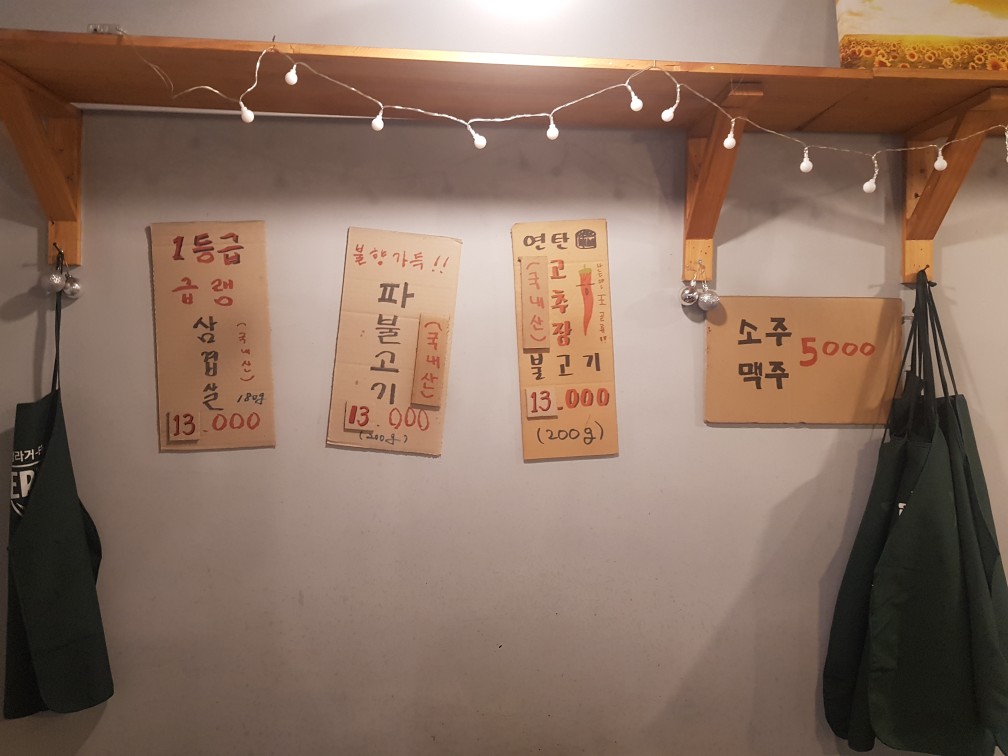 1등급
급랭
삼겹살
(국내산)
180g
13.000
불향가득!!
파불고기
(국내산)
13.000
(200g)
연탄
고추장
(국내산)
불고기
13.000
(200g)
소주
맥주
5000
라거